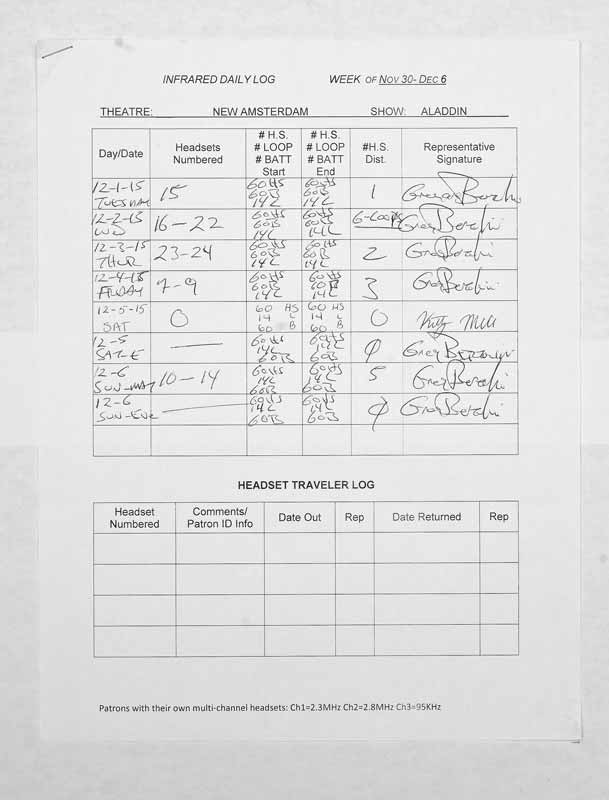 INFRARED DAILY LOG WEEK OF NOV 30- DEC 6
THEATRE: NEW AMSTERDAM SHOW: ALADDIN
Day/Date
Headsets
Numbered
# H.S.
# LOOP
# BATT
Start
# H.S.
# LOOP
# BATT
End
#H.S.
Dist.
Representative
Signature
12-1-15
TUESDAY
15
60HS
60B
14L
60HS
60B
14L
1
12-2-15
WED
16-22
60HS
60B
14L
60HS
60B
14L
6-LOOPS
12-3-15
THUR
23-24
60HS
60B
14L
60HS
60B
14L
2
12-4-15
FRIDAY
7-9
60HS
60B
14L
60HS
60B
14L
3
12-5-15
SAT
0
60 HS
14 L
60 B
60 HS
14 L
60 B
0
12-5
SAT-E
60HS
14L
60B
60HS
14L
60B
0
12-6
SUN-MAT
10-14
60HS
14L
60B
60HS
14L
60B
5
12-6
SUN-EVE
60HS
14L
60B
60HS
14L
60B
0
HEADSET TRAVELER LOG
Headset
Numbered
Comments/
Patron ID Info
Date Out
Rep
Date Returned
Rep
Patrons with their own multi-channel headsets: Ch1=2.3MHz Ch2=2.8MHz Ch3=95KHz